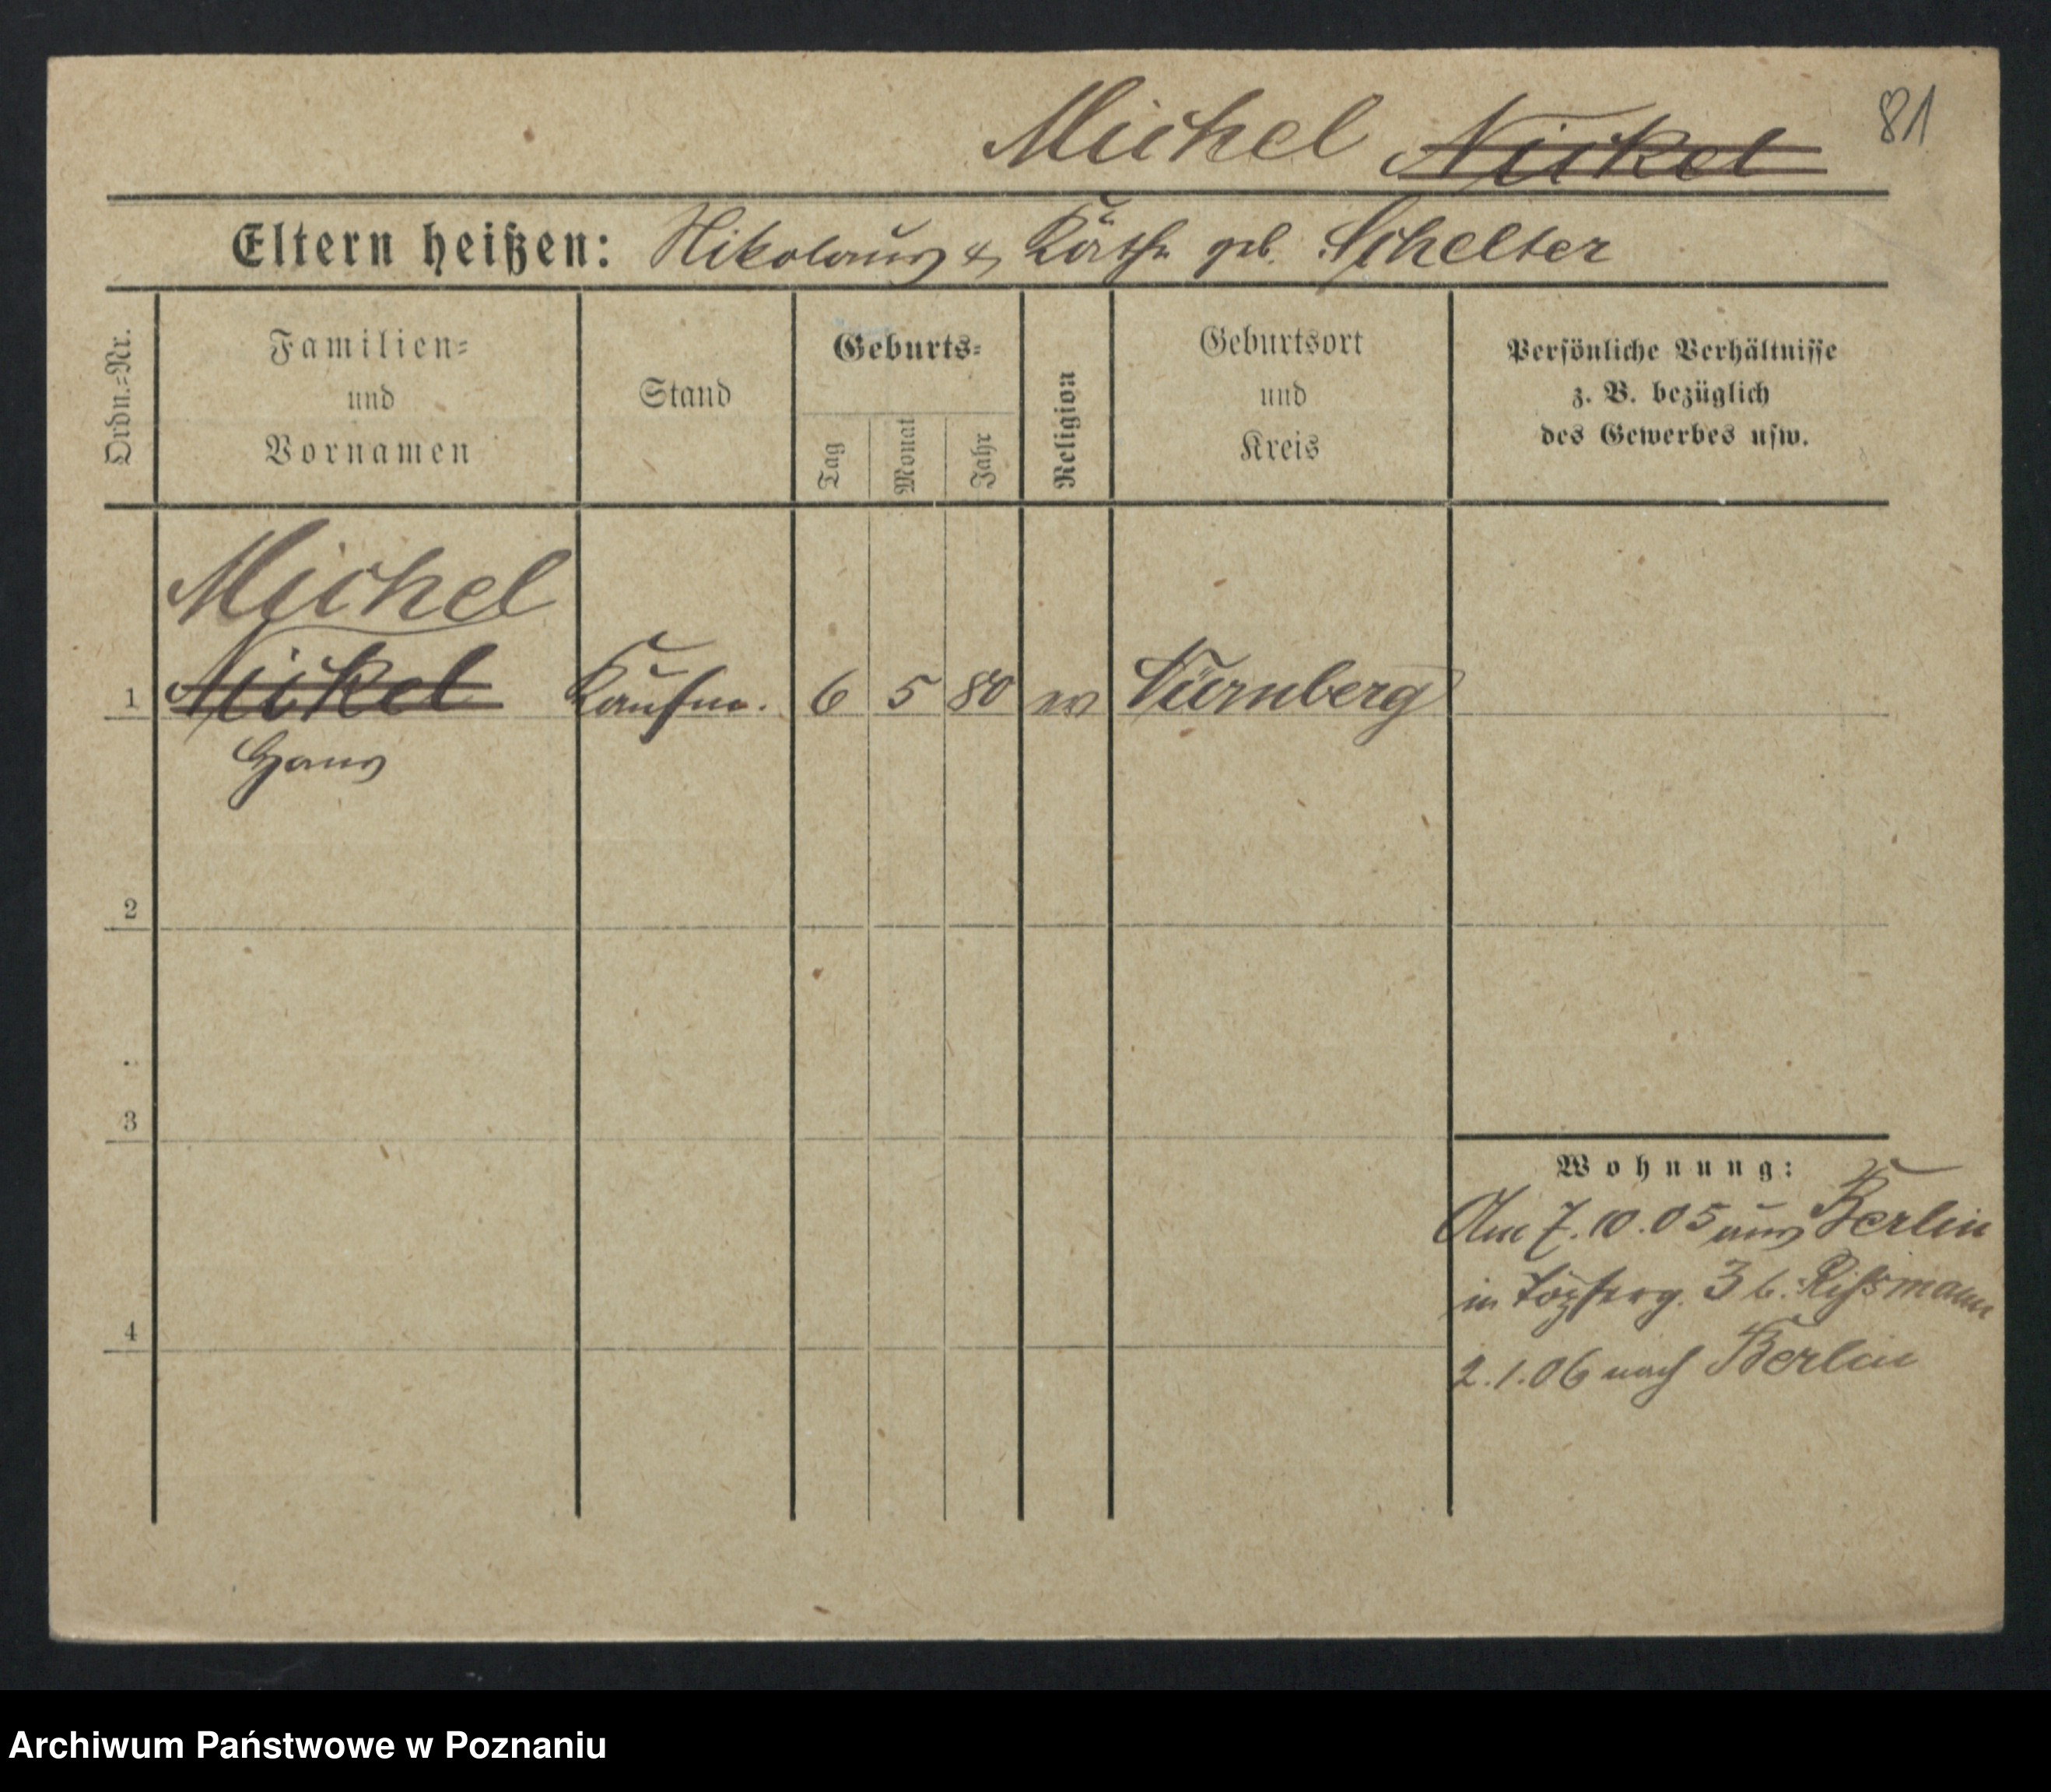 81
Michel Nickel
Eltern heißen: Nikolaus & Käthe geb. Schelter
Ordn.=Nr.
Familien=
und
Vornamen
Stand
Geburts=
Tag
Monat
Jahr
Religion
Geburtsort
und
Kreis
Persönliche Verhältnisse
z. B. bezüglich
des Gewerbes usw.
Michel
1 Nickel Kaufm. 6 5 80 ev Nürnberg
Hans
2
3
4
Wohnung:
Am 7.10.05 aus Berlin
in Töpferg. 3 b. Rissmann
2.1.06 nach Berlin
Archiwum Państwowe w Poznaniu